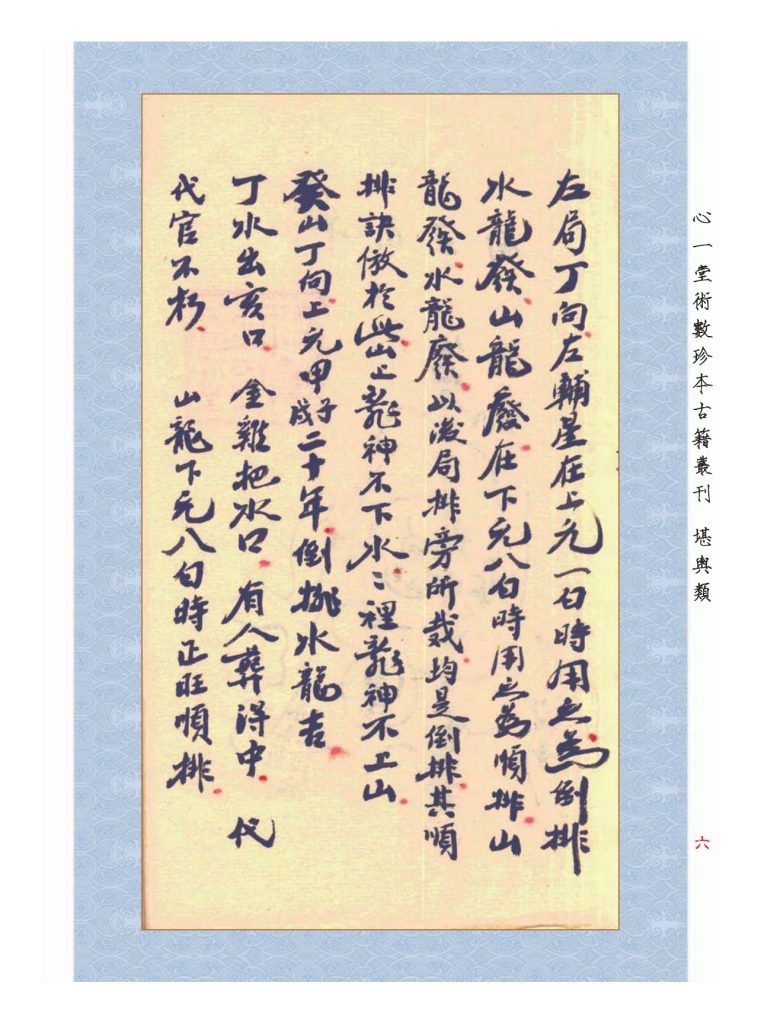 左局丁向左輔星在上元一白時用之為倒排
水龍發山龍廢在下元八白時用之為順排山
龍發水龍廢以後局排旁所裁均是倒排其順
排訣倣於此山上龍神不下水〻裡龍神不上山
癸山丁向上元甲子戍二十年倒排水龍吉
丁水出亥口 金雞把水口 有人葬得中 代
代官不朽 山龍下元八白時正旺順排
心一堂術數珍本古籍叢刊 堪輿類
六